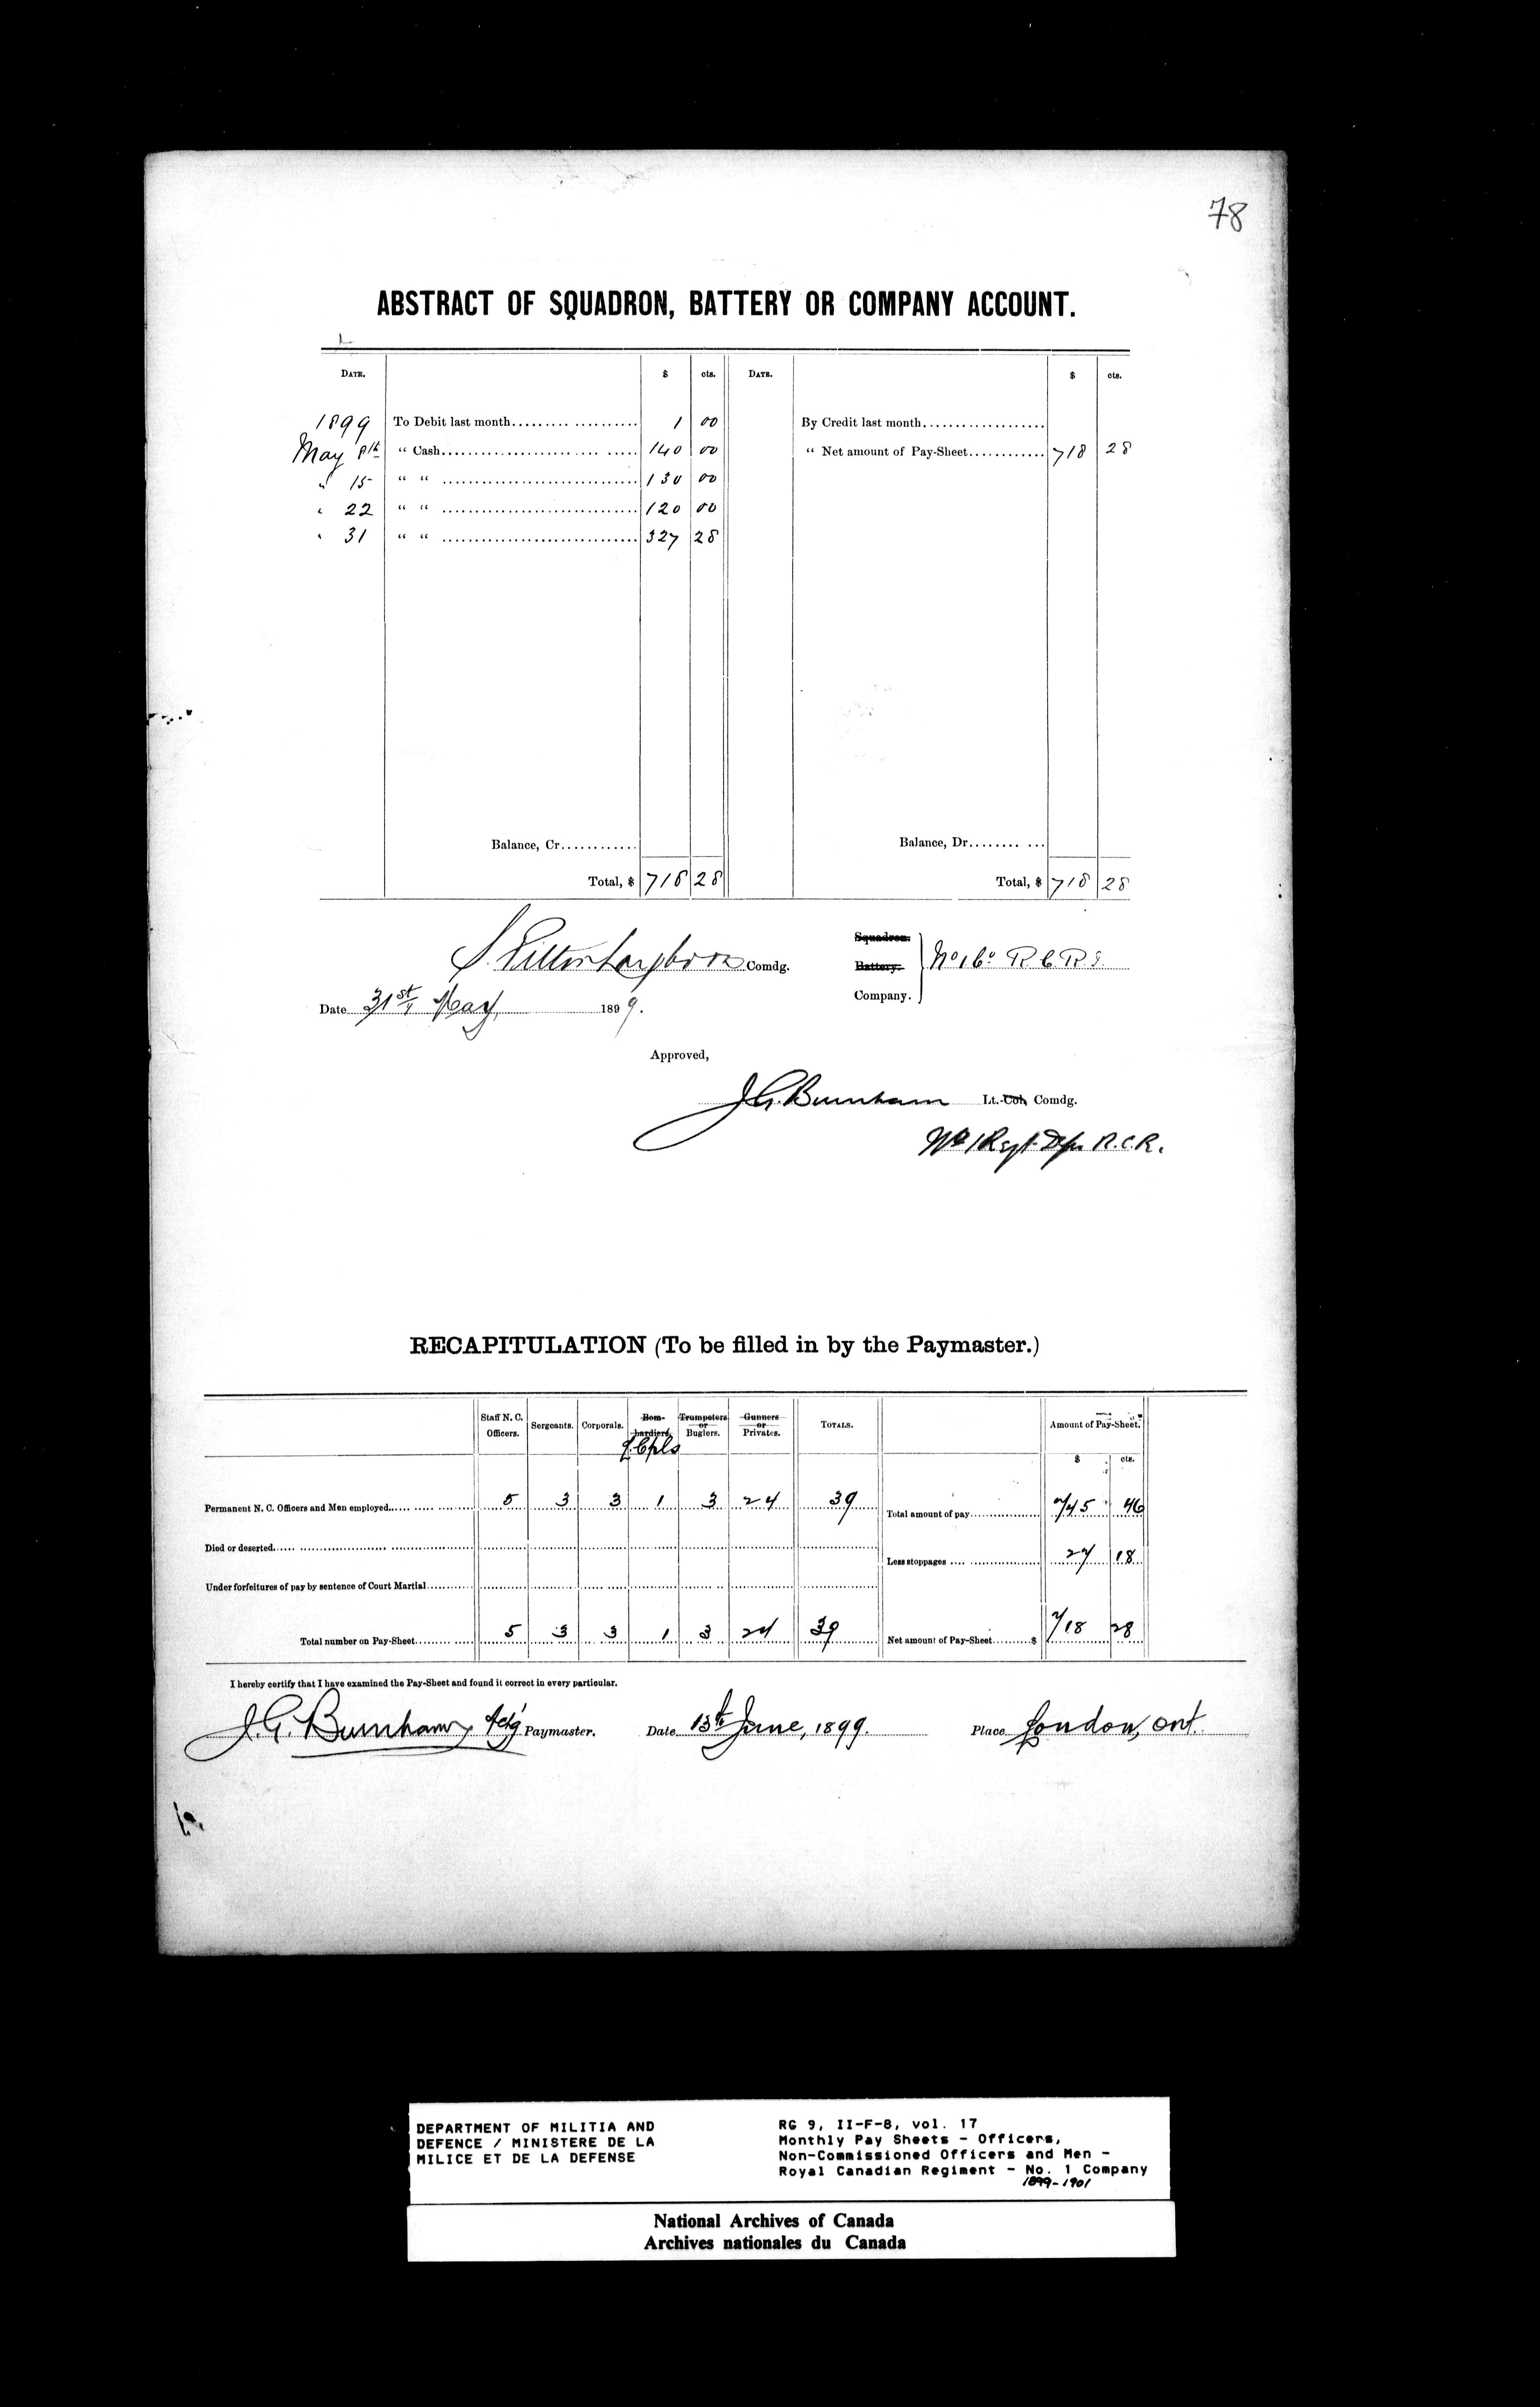 78
ABSTRACT OF SQUADRON, BATTERY OR COMPANY ACCOUNT.
DATE. $ cts. DATE. $ cts.
1899 To Debit last month 1 00 By Credit last month
May 8th " Cash 140 00 " Net amount of Pay-Sheet 718 28
" 15 " " 130 00
" 22 " " 120 00
" 31 " " 327 28
Balance, Cr. Balance, Dr.
Total, $ 718 28 Total, $ 718 28
Squadron.
Comdg. Battery. No 1 Co R C R I.
Company.
Date 31st May 1899.
Approved,
J.G. Burnham Lt.-Col, Comdg.
No 1 Regt. Depot R.C.R.
RECAPITULATION (To be filled in by the Paymaster.)
Staff N. C. Officers. Sergeants. Corporals. Bombardiers. L. Cpls Trumpeters or Buglers. Gunners or Privates. TOTALS. Amount of Pay-Sheet.
$ cts.
Permanent N. C. Officers and Men employed 5 3 3 1 3 24 39 Total amount of pay 745 46
Died or deserted Less stoppages 27 18
Under forfeitures of pay by sentence of Court Martial
Total number on Pay-Sheet 5 3 3 1 3 24 39 Net amount of Pay-Sheet $ 718 28
I hereby certify that I have examined the Pay-Sheet and found it correct in every particular.
J.G. Burnham Actg Paymaster. Date 13th June, 1899. Place London, Ont.
DEPARTMENT OF MILITIA AND
DEFENCE / MINISTERE DE LA
MILICE ET DE LA DEFENSE
RG 9, II-F-8, vol. 17
Monthly Pay Sheets - Officers,
Non-Commissioned Officers and Men -
Royal Canadian Regiment - No. 1 Company
1899-1901
National Archives of Canada
Archives nationales du Canada